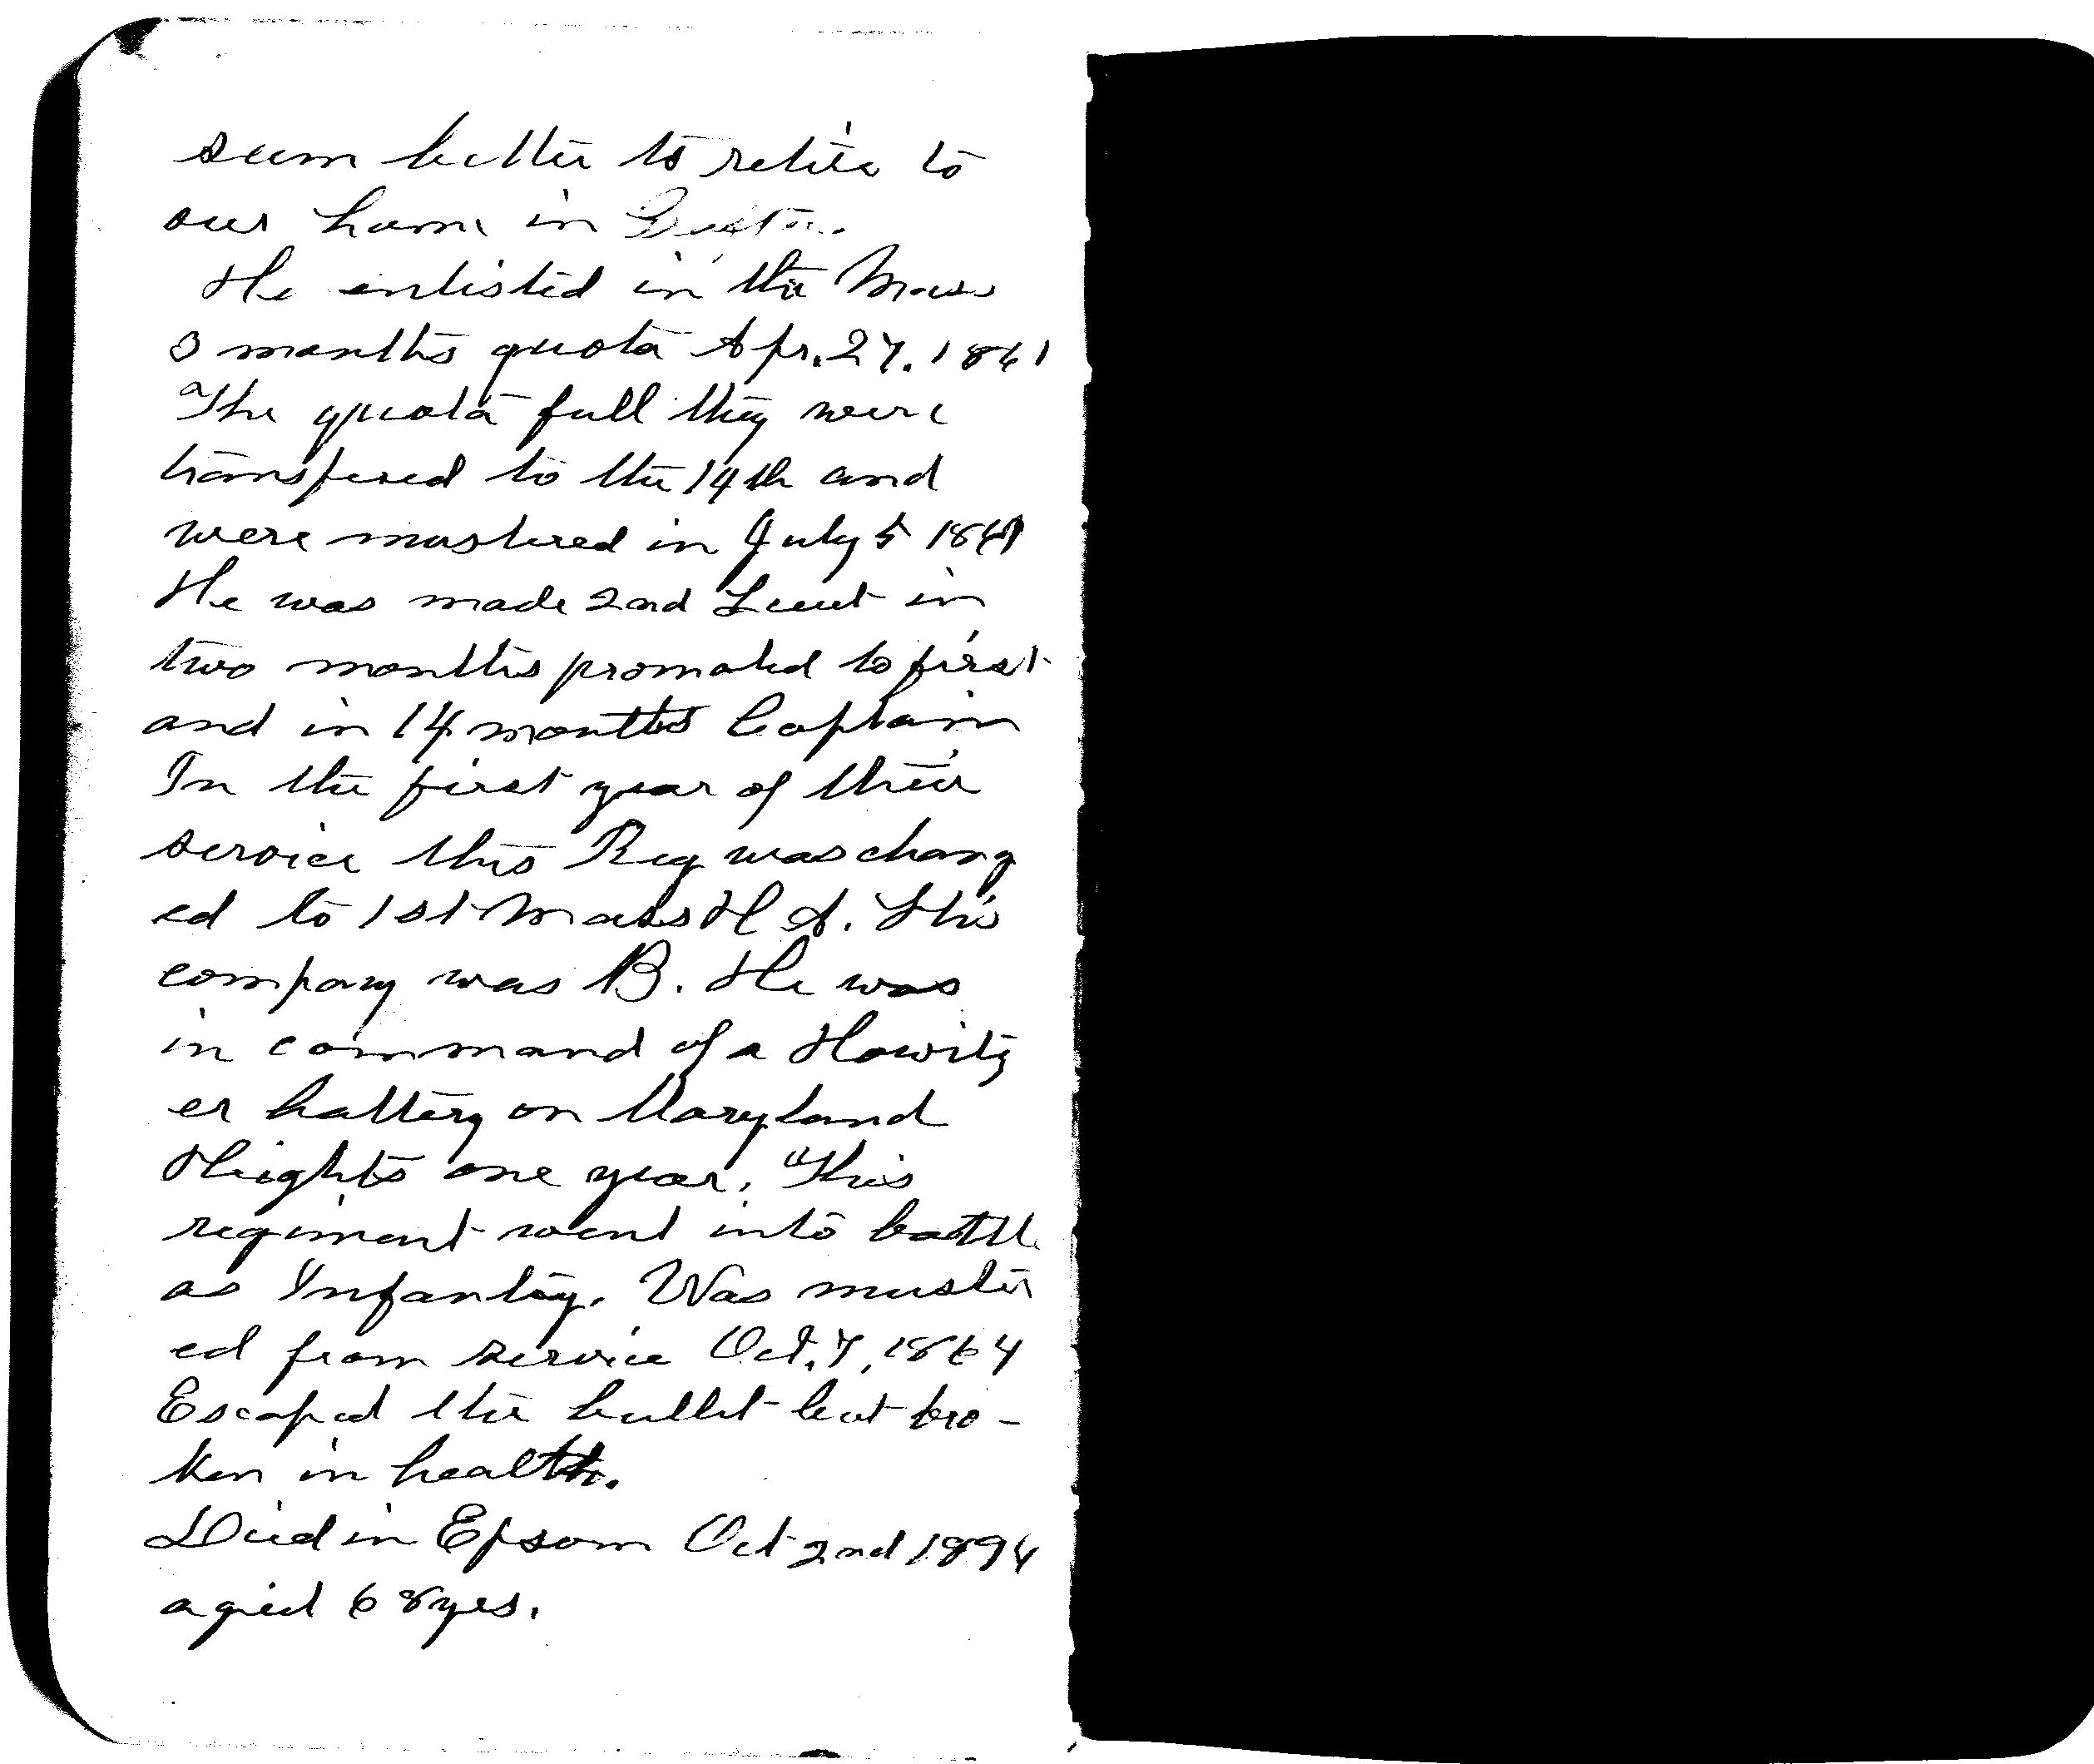 seem better to retire to
our home in
He enlisted in the Mass
3 months quota Apr. 27. 1861
The quota full they were
transfered to the 14th and
were mustered in July 5 1861
He was made 2nd Lieut in
two months promoted to first
and in 14 months Captain
In the first year of their
service this Reg was chang
ed to 1st Mass H A. His
company was B. He was
in command of a Howitz
er battery on Maryland
Heights one year. This
regiment went into battle
as Infantry. Was muster
ed from service Oct. 7, 1864
Escaped the bullet but bro-
ken in health.
Died in Epsom Oct 2nd 1894
aged 68 yrs.